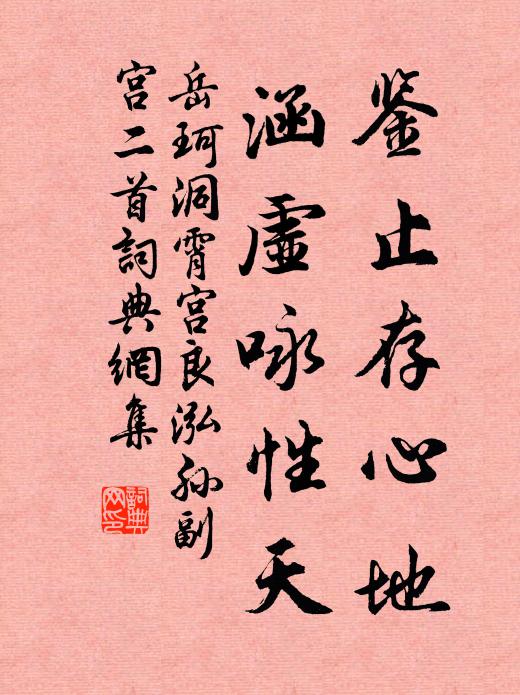 鉴止存心地
涵虚咏性天
岳珂洞霄宫良泓孙副
宫二首詞典網集
詞典網印